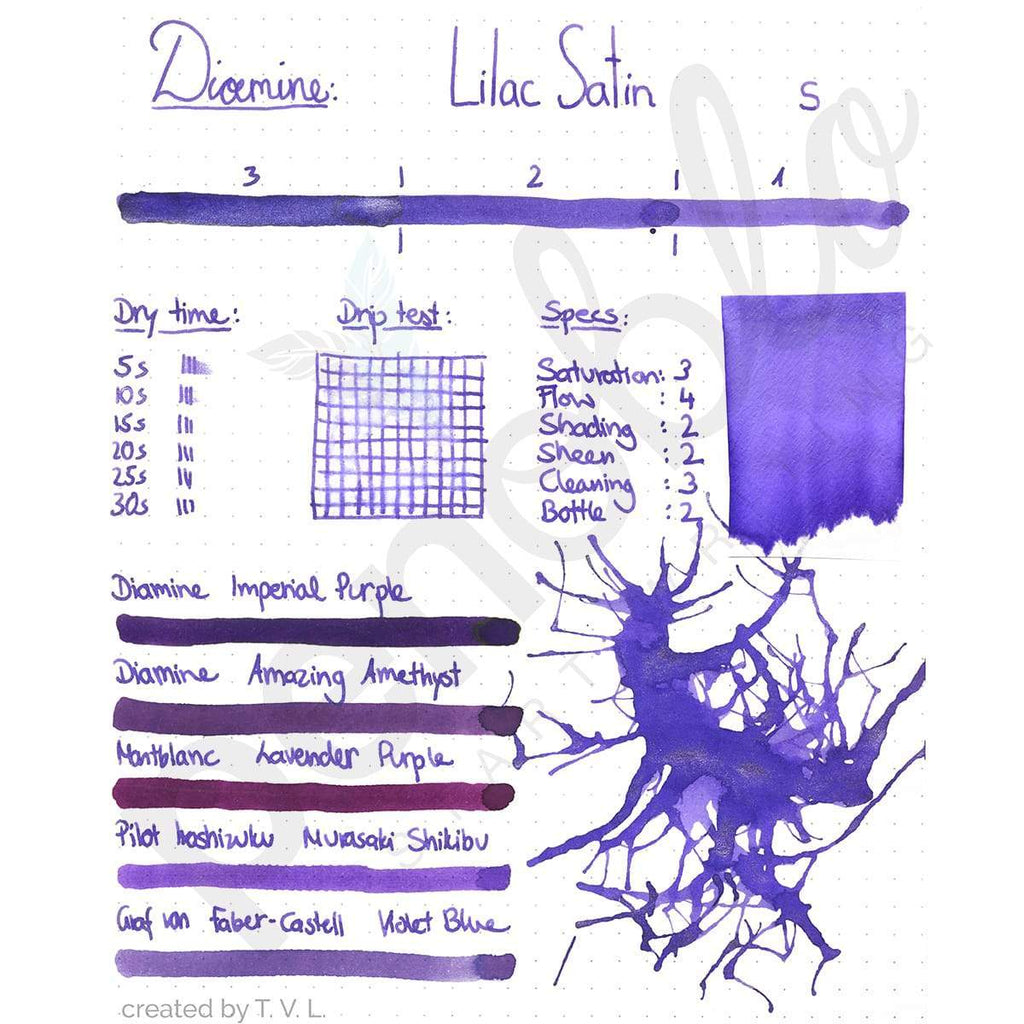 Diamine: Lilac Satin S
3 | 2 | 1
Dry time: Drip test: Specs:
5s
10s
15s
20s
25s
30s
Saturation: 3
Flow : 4
Shading : 2
Sheen : 2
Cleaning : 3
Bottle : 2
Diamine Imperial Purple
Diamine Amazing Amethyst
Montblanc Lavender Purple
Pilot Iroshizuku Murasaki Shikibu
Graf von Faber-Castell Violet Blue
penoblo
created by T. V. L.